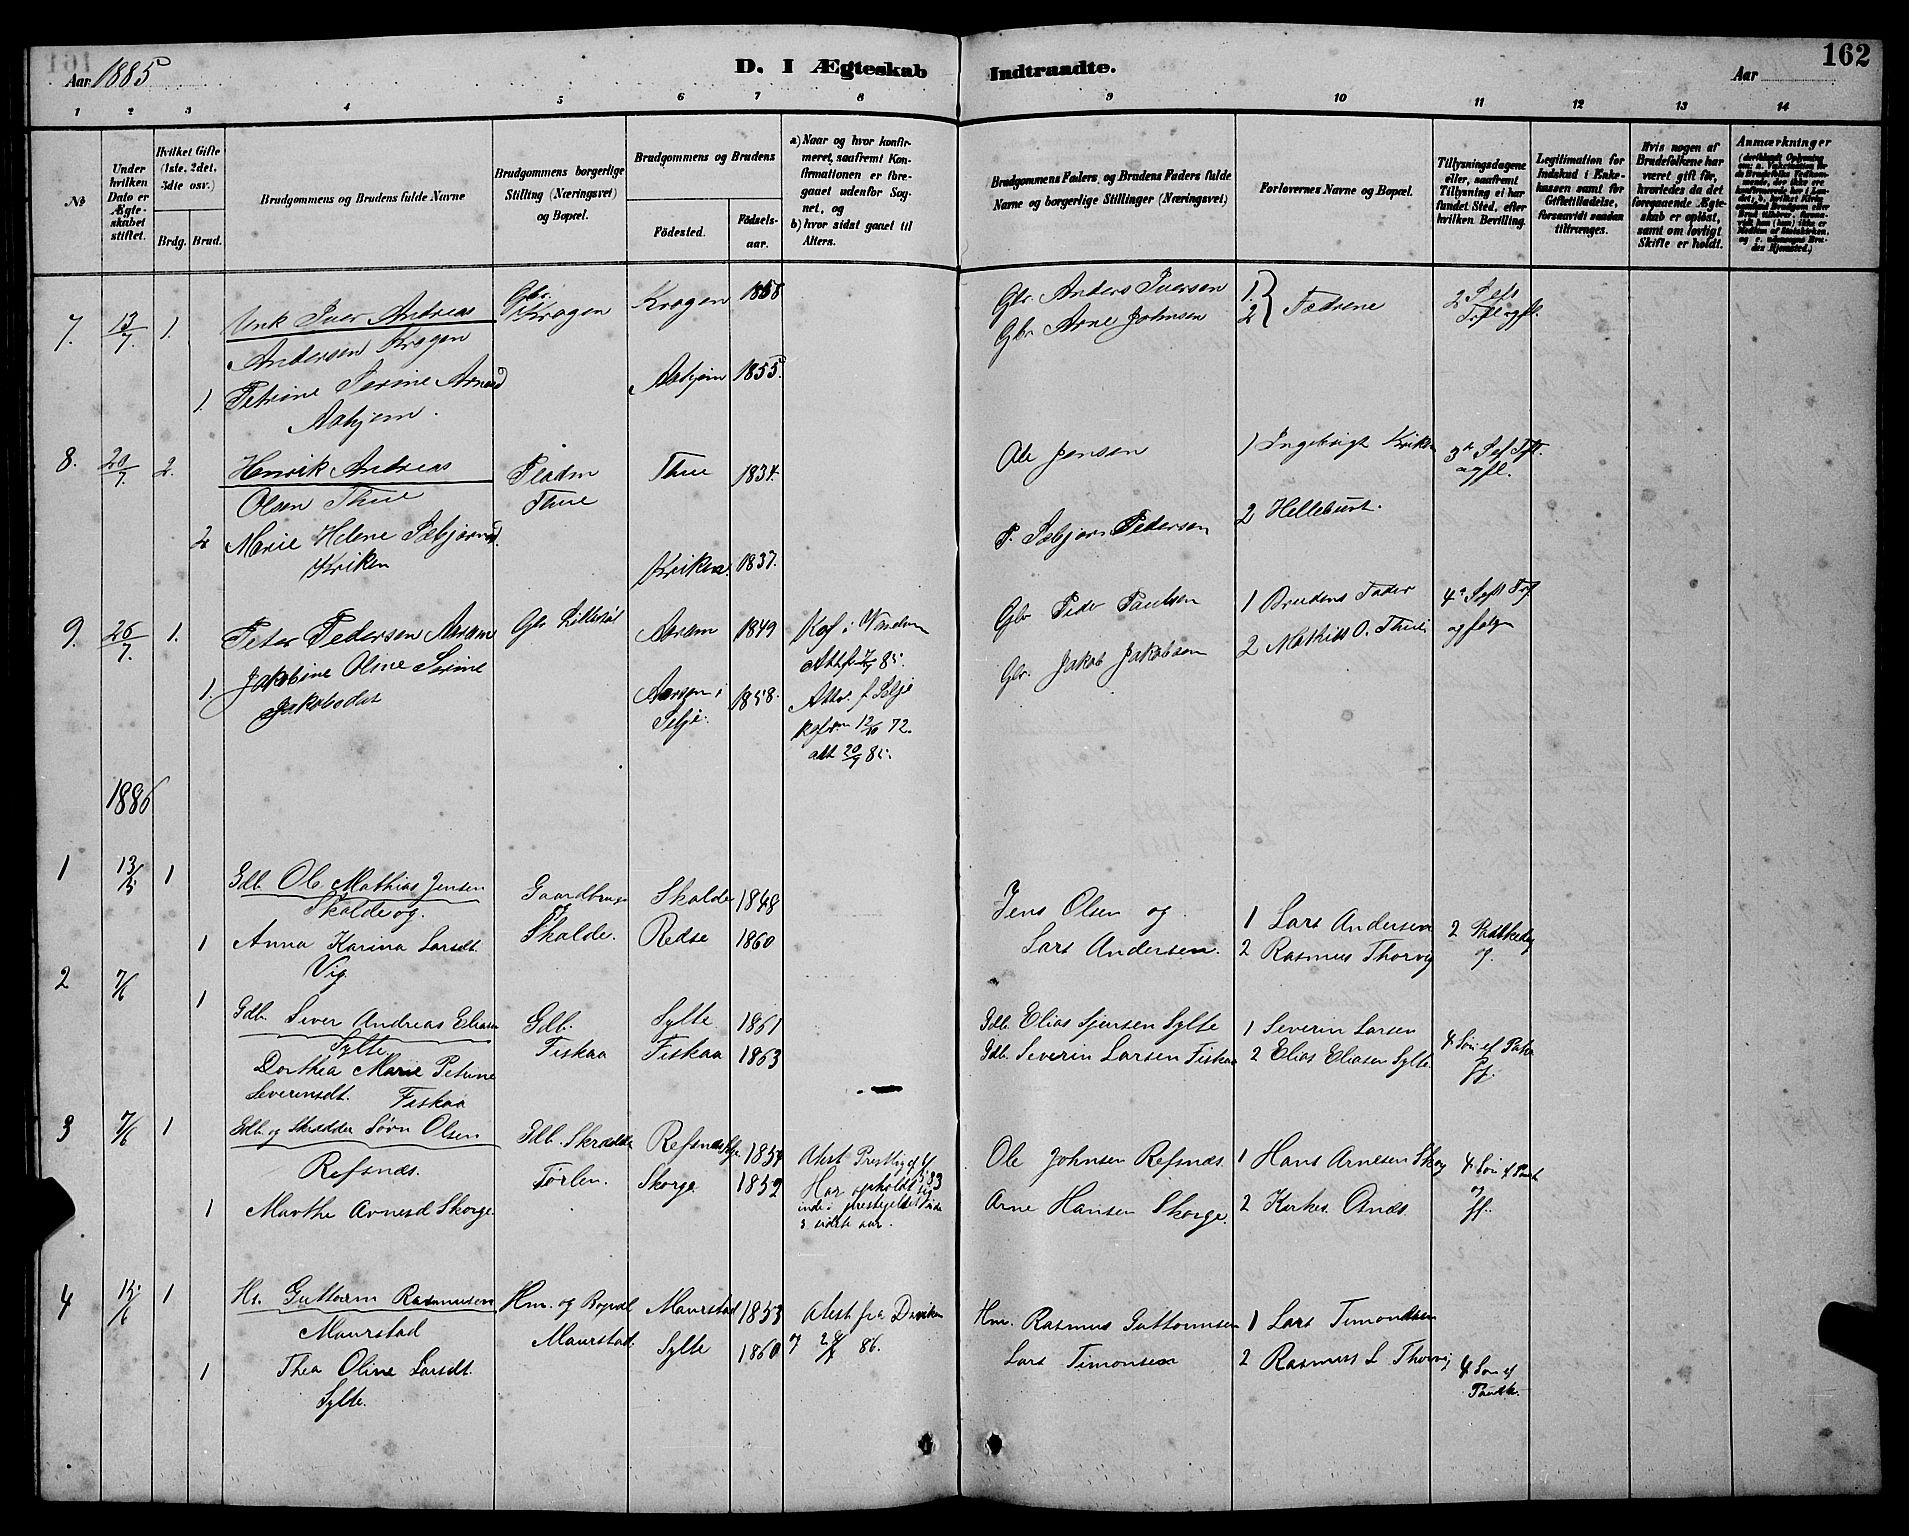 161
Aar 1885
D. I Ægteskab Indtraadte.
Aar
162
1 2 3 4 5 6 7 8 9 10 11 12 13 14
No
Under hvilken Dato er Ægteskabet stiftet.
Hvilket Gifte (1ste, 2det, 3die osv.)
Brdg. Brud.
Brudgommens og Brudens fulde Navne
Brudgommens borgerlige Stilling (Næringsvei) og Bopæl.
Brudgommens og Brudens
Fødested.
Fødselsaar.
a) Naar og hvor konfirmeret, saafremt Konfirmationen er foregaaet udenfor Sognet, og
b) hvor sidst gaaet til Alters.
Brudgommens Faders, og Brudens Faders fulde Navne og borgerlige Stillinger (Næringsvei)
Forlovernes Navne og Bopæl.
Tillysningsdagene eller, saafremt Tillysning ei har fundet Sted, efter hvilken Bevilling.
Legitimation for Indskud i Enkekassen samt for Giftetilladelse, forsaavidt saadan tiltrænges.
Hvis nogen af Brudefolkene har været gift før, hvorledes da det foregaaende Ægteskab er opløst, samt om lovligt Skifte er holdt.
Anmærkninger
7. 13/7 1. Unk Iver Andreas
Andersen Kragen
Gbr. Kragen
Kragen 1858
Gbr. Anders Iversen 1.
Gbr. Arne Johnsen 2 } Fædrene
1. Petrine Serine Arnesd
Aahjem.
Aahjem 1855.
8. 20/7 2. Henrik Andreas
Olsen Thue
Pladsm
Thue
Thue 1834.
Ole Jensen
1 Ingebrigt Kriken
2 Marie Helene Sæbjørnsd.
Kriken
Kriken 1837.
P. Sæbjørn Pedersen
2 Helleburt.
9. 26/7. 1. Peter Pedersen Aaram
Gbr Lillebø
Aaram 1849
Kof i Vanelven
Gbr Peder Paulsen
1 Brudens Fader
1. Jakobine Oline Serine
Jakobsdat
Selje. 1858.
Att. f Selje
12/10 72.
att 20/9 85.
Gbr. Jakob Jakobsen
2 Mathias O. Thue
1886
1 13/5 1 Gdb. Ole Mathias Jensen
Skolde og
Gaardbruger
Skolde.
Skolde 1848
Jens Olsen og
1 Lars Andersen
2
1 Anna Karina Larsdt.
Vig.
Redse 1860
Lars Andersen.
2 Rasmus Thorvig
2 7/6 1 Gdb. Sever Andreas Eliasen
Sylte.
Gdb.
Fiskaa
Sylte 1861
Gdb. Elias Sjursen Sylte
1 Severin Larsen
Dorthea Marie Petrine
Severinsdt. Fiskaa
Fiskaa 1863
Gdb. Severin Larsen Fiskaa
2 Elias Eliasen Sylte.
4 Søn ef Paske
3 7/6 1 Gdb. og Skrædder Søvn Olsen
Refsnæs.
Gdb. Skrædder
Tørlen.
Refsnæs 1854
Atest
Ole Johnsen Refsnæs.
1 Hans Arnesen Skorg
4 Søn ef Paask
1 Marthe Arnesd Skorge
Skorge 1852
Har opholdt sig
inde i prestegjeldet i de
3 sidste aar.
Arne Hansen Skorge.
2 Kirkes. Osnæs.
4 15/6 1 Hr. Guttorm Rasmussen
Maurstad
Hm. og Bopæl
Maurstad.
Maurstad 1853
Atest fra Daviken
Hm. Rasmus Guttormsen
1 Lars Timondsen
1 Thea Oline Larsdt.
Sylte.
Sylte 1860
86.
Lars Timonsen
2 Rasmus L Thorvig
4 Søn ef
Paask.